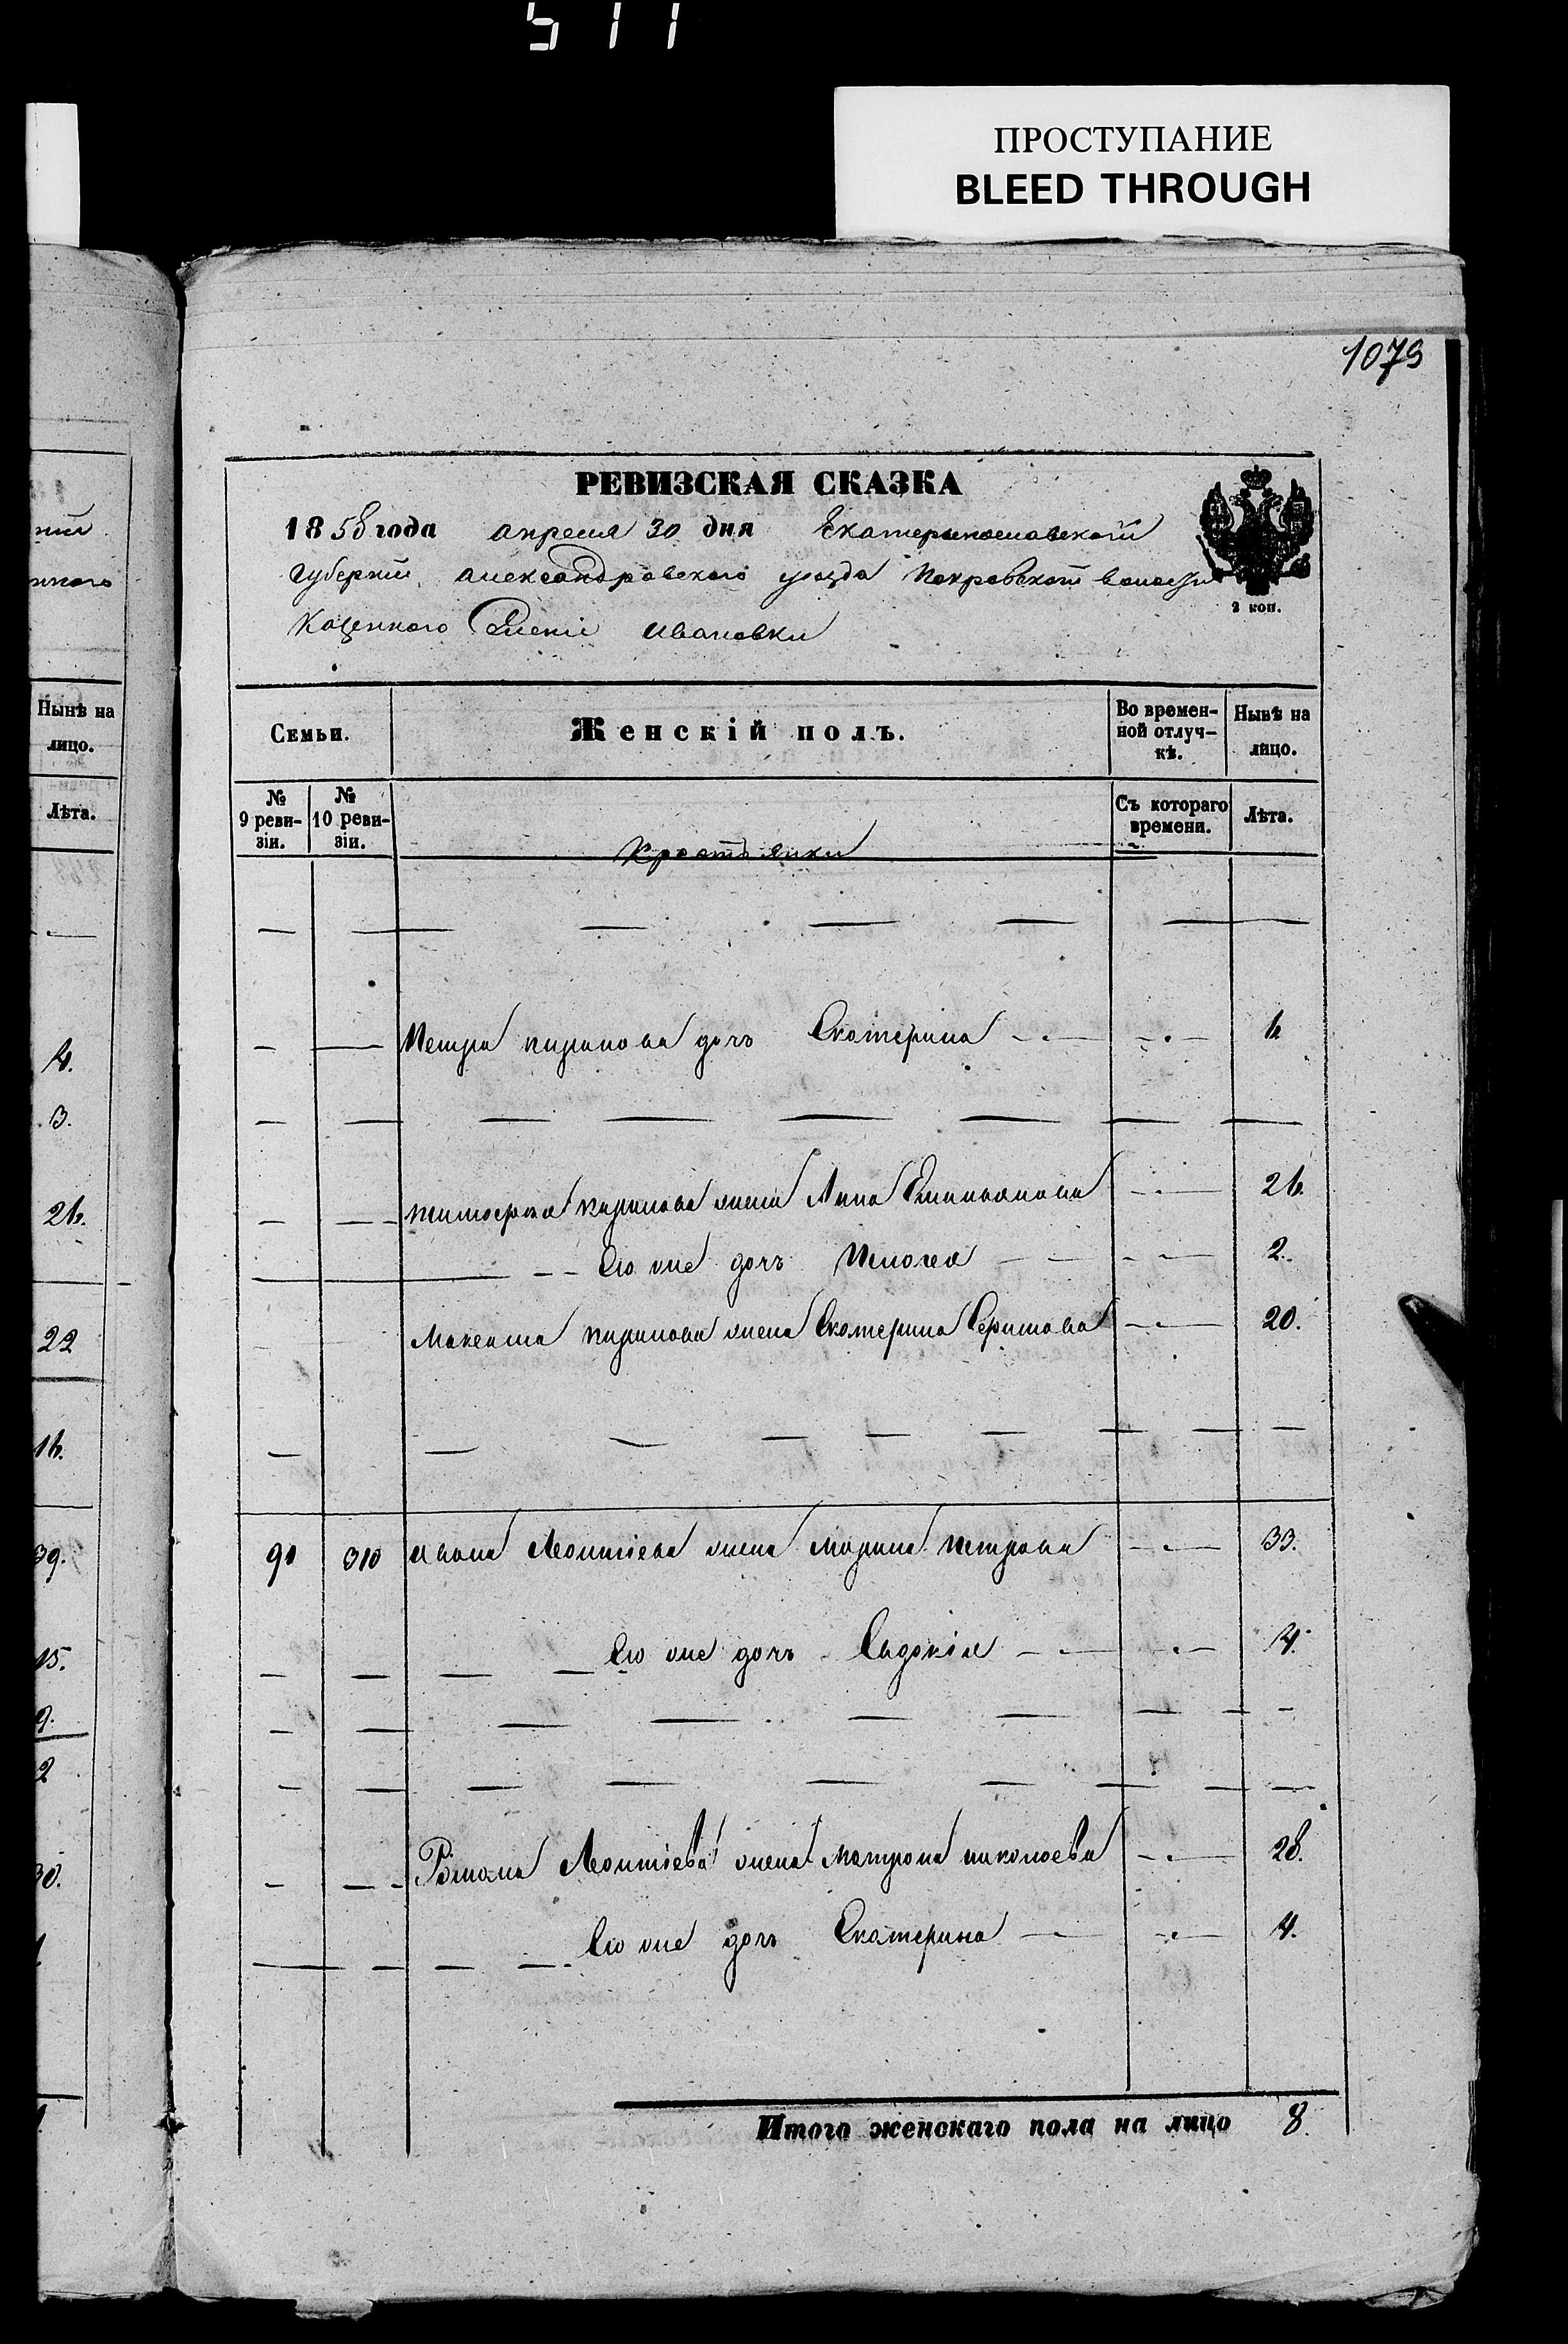 511
ПРОСТУПАНИЕ
BLEED THROUGH
1073
РЕВИЗСКАЯ СКАЗКА
1858 года апреля 30 дня Екатеринославской
губернии александровского уезда Покровской волости
Казенного Селенiя Ивановки
2 коп.
Семьи. Женскій полъ. Во времен-ной отлуч-кѣ. Нынѣ на лицо.
№ 9 реви-зіи. № 10 реви-зіи. Крестьянки Съ котораго времени. Лѣта.
Петра кирилова дочь Екатерина 6
Тимофея кирилова жена Анна Емильянова 26.
Его же дочь 2.
Максима кирилова жена Екатерина 20.
90 310 Ивана Леонтіева жена Марина петрова 33.
Его же дочь Евдокія 14.
Романа Леонтіева жена Матрона николаева 28.
Его же дочь Екатерина 4.
Итого женскаго пола на лицо 8.
Нынѣ на
лицо.
Лѣта.
4.
3.
26.
22
16.
39.
15.
9.
2
30.